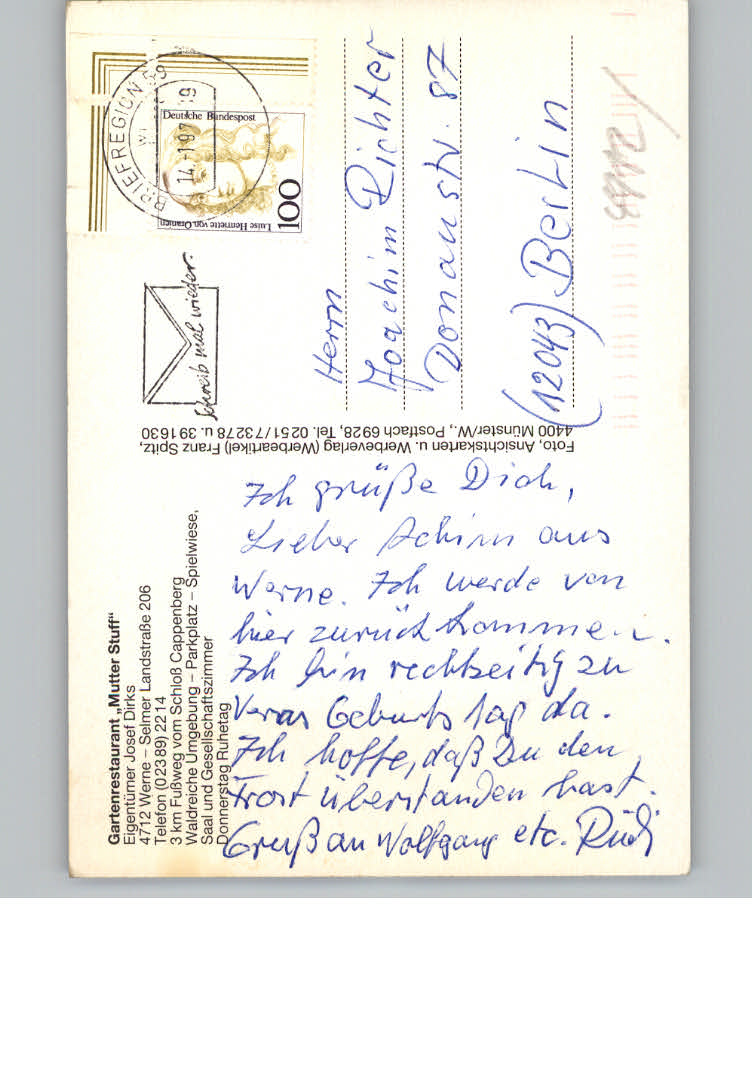 Gartenrestaurant „Mutter Stuff“
Eigentümer Josef Dirks
4712 Werne – Selmer Landstraße 206
Telefon (0 23 89) 22 14
3 km Fußweg vom Schloß Cappenberg
Waldreiche Umgebung – Parkplatz – Spielwiese,
Saal und Gesellschaftszimmer
Donnerstag Ruhetag
Ich grüße Dich,
Lieber Achim aus
Werne. Ich werde von
hier zurück kommen.
Ich bin rechtzeitig zu
Veras Geburtstag da.
Ich hoffe, daß Du den
Frost überstanden hast.
Gruß an Wolfgang etc. Rüdi
Foto, Ansichtskarten u. Werbeverlag (Werbeartikel) Franz Spitz,
4400 Münster/W., Postfach 6928, Tel. 0251/73278 u. 391630
Schreib mal wieder.
BRIEFREGION 59
14.-1.97-19
Deutsche Bundespost
100
Luise Henriette von Oranien
Herrn
Joachim Richter
Donaustr. 87
(12043) Berlin